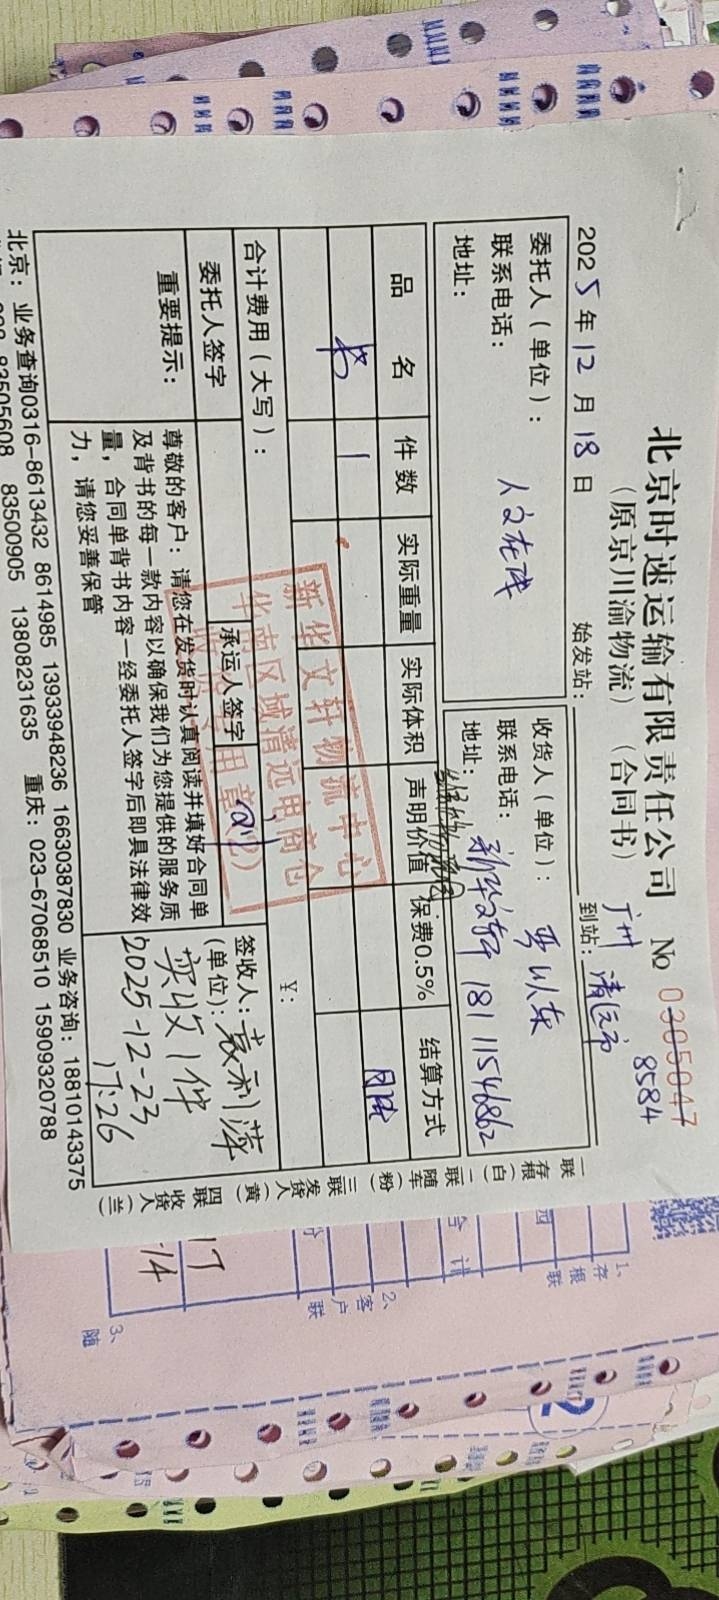 北京时速运输有限责任公司 No 0305047
（原京川渝物流）（合同书） 8584
2025年12月18日 始发站： 到站：广州 清远市
委托人（单位）：人文在线
联系电话：
地址：
收货人（单位）：
联系电话：新华文轩 181 11546862
地址：
品名 件数 实际重量 实际体积 声明价值 保费0.5% 结算方式
书 1 月结
合计费用（大写）： ￥：
委托人签字 承运人签字
签收人：袁利萍
（单位）：实收1件
2025-12-23
17:26
重要提示：
尊敬的客户：请您在发货时认真阅读并填好合同单
及背书的每一款内容以确保我们为您提供的服务质
量，合同单背书内容一经委托人签字后即具法律效
力，请您妥善保管
新华文轩物流中心
华南区域清远电商仓
收货专用章(2)
北京：业务查询0316-8613432 8614985 13933948236 16630387830 业务咨询：18810143375
83505608 83500905 13808231635 重庆：023-67068510 15909320788
一联存根（白）二联随车（粉）三联发货人（黄）四联收货人（兰）
1、存根联
2、客户联
3、随
合计
17
14
2